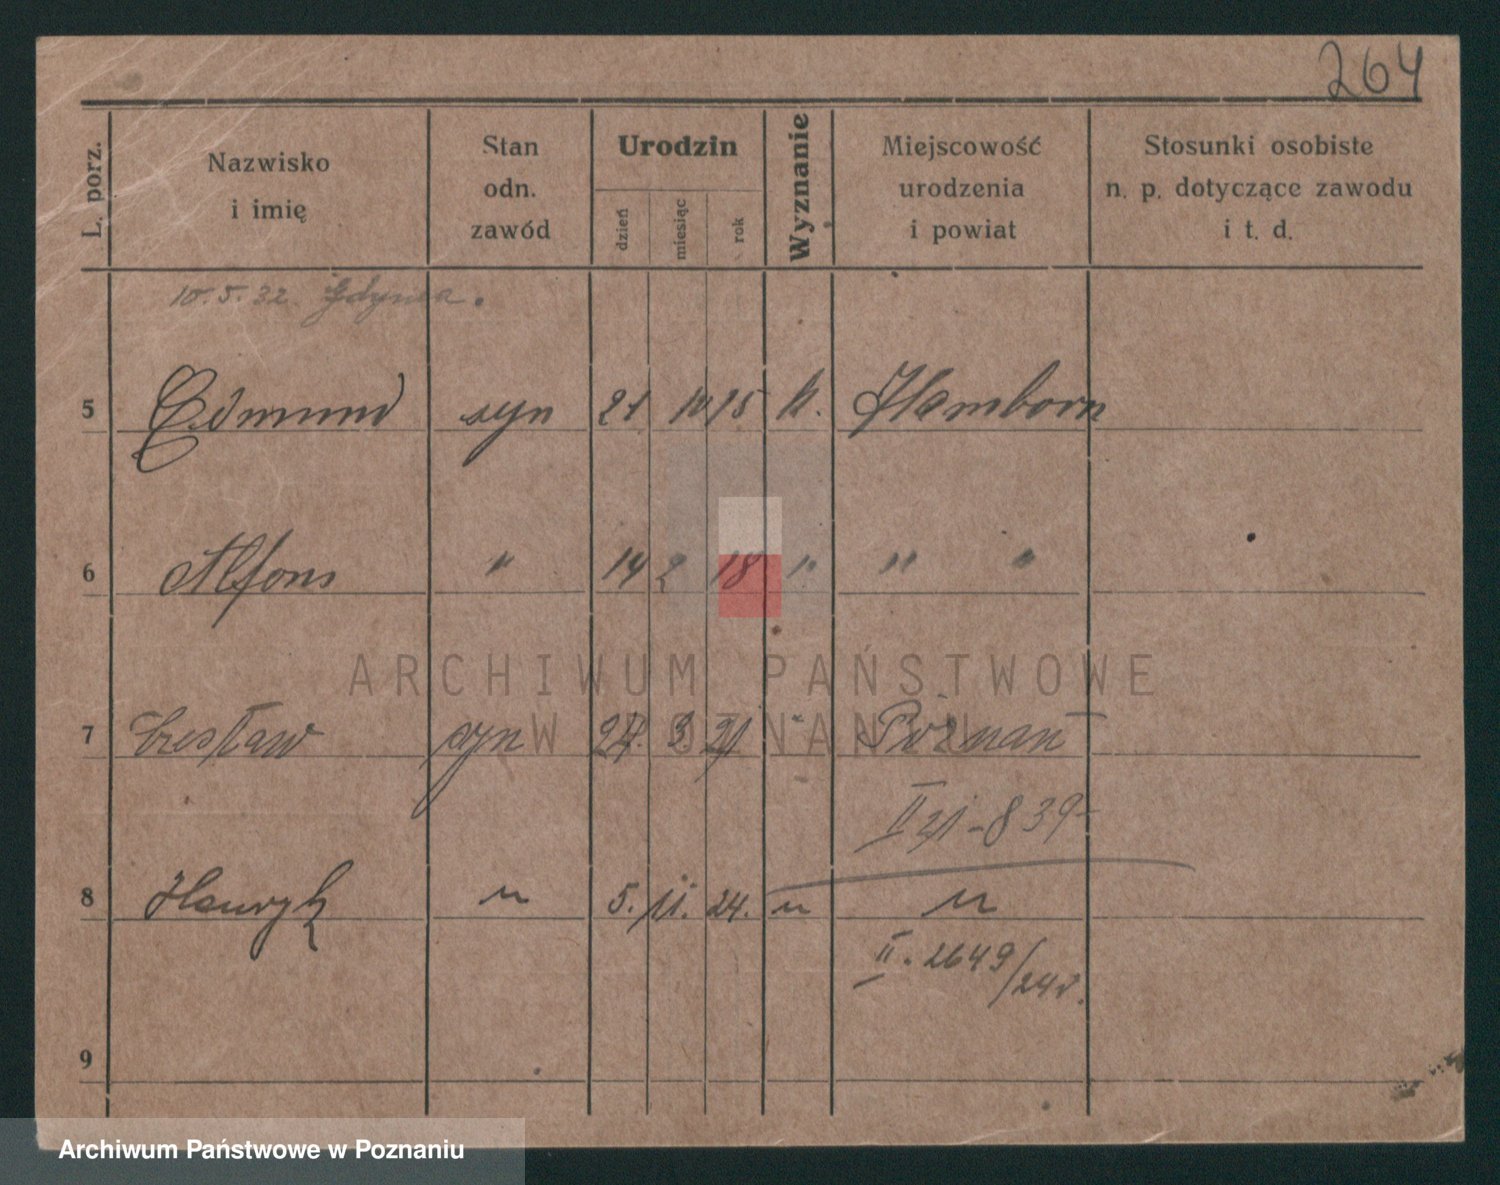 264
L. porz. Nazwisko i imię Stan odn. zawód Urodzin dzień miesiąc rok Wyznanie Miejscowość urodzenia i powiat Stosunki osobiste n. p. dotyczące zawodu i t. d.
10. 5. 32. Gdynia.
5 Edmund syn 21 10 15 k. Hamborn
6 Alfons " 14 2 18 " " "
ARCHIWUM PAŃSTWOWE
W POZNANIU
7 Czesław syn 3. 21 " Poznań
II 21 - 839 -
8 Henryk " 5. 11. 24. " "
II. 2649/24r.
9
Archiwum Państwowe w Poznaniu